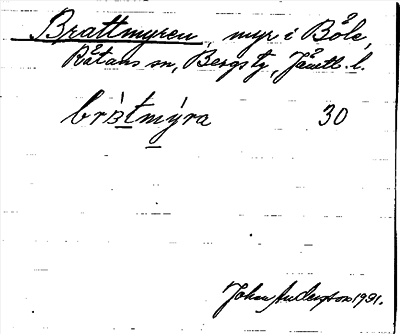 Brattmyren, myr i Böle,
Råtans sn, Bergs tg, Jämtl. l.
brat̲my̲ra 30
Johan Anderson 1991.